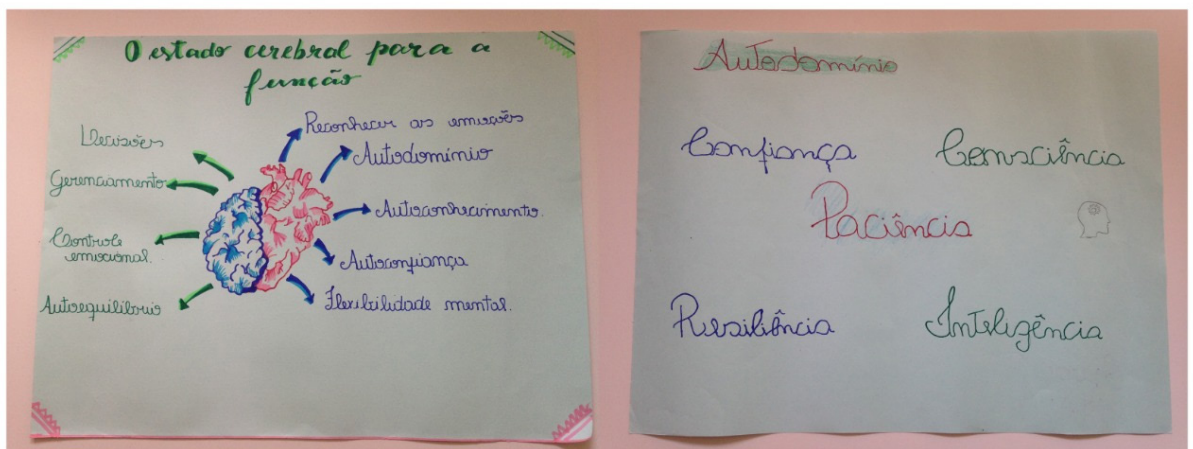 O estado cerebral para a
função
Decisões
Gerenciamento
Controle
emocional.
Autoequilíbrio
Reconhecer as emoções
Autodomínio
Autoconhecimento.
Autoconfiança
Flexibilidade mental.
Autodomínio
Confiança
Consciência
Paciência
Resiliência
Inteligência